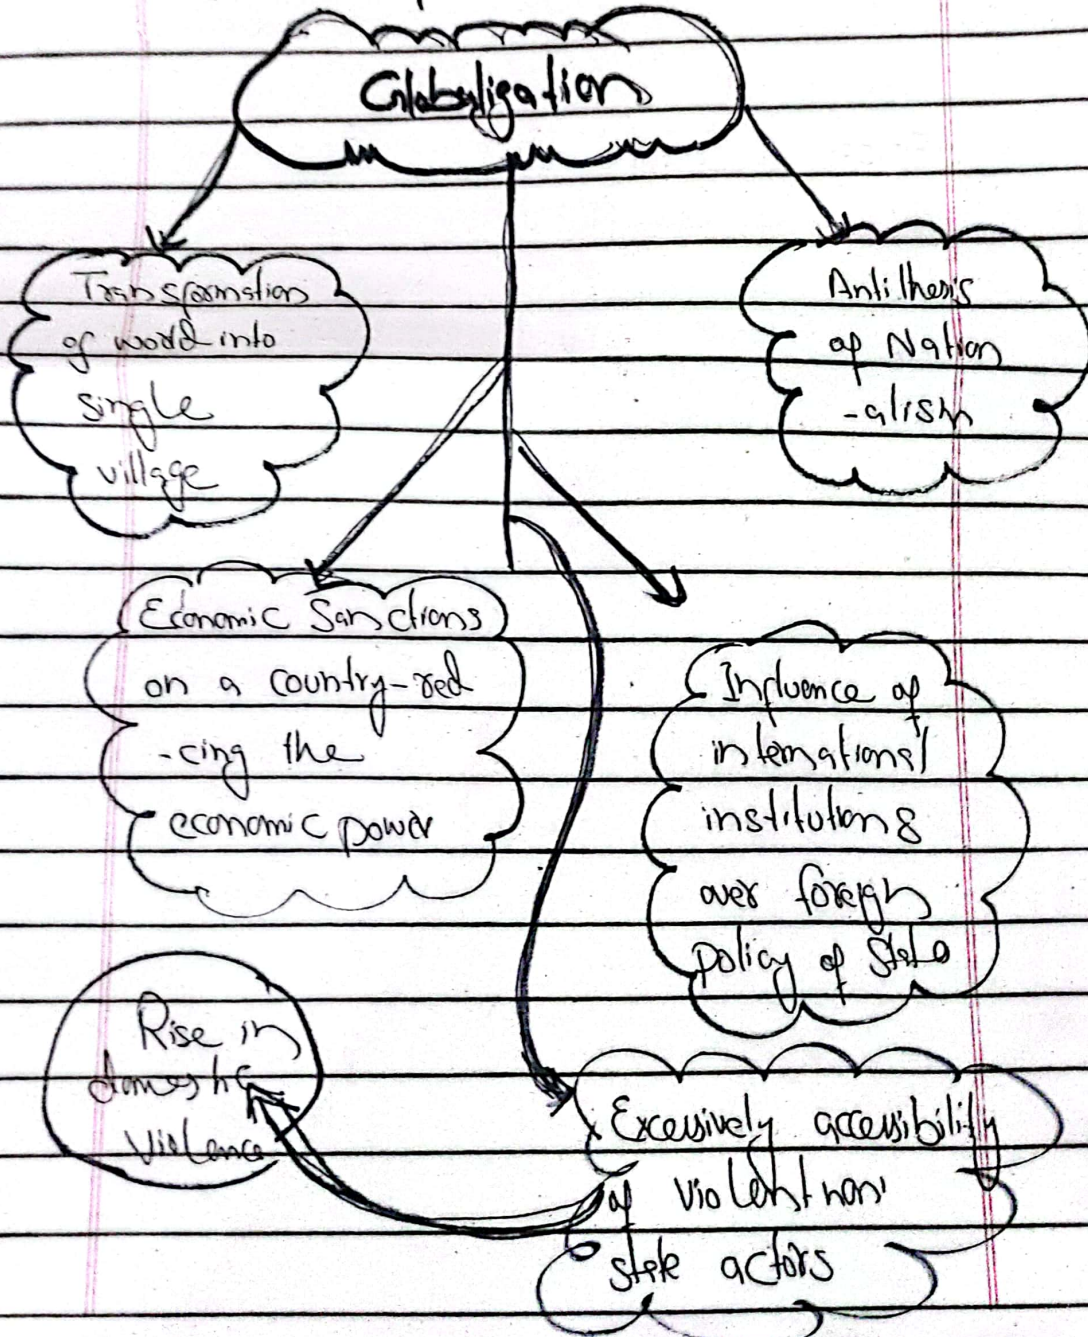 Globalization
Transformation
of world into
single
village
Antithesis
of Nation
-alism
Economic Sanctions
on a country-red
-cing the
economic power
Influence of
international
institutions
over foreign
policy of State
Rise in
domestic
Violence
Excessively accessibility
of violent non
state actors